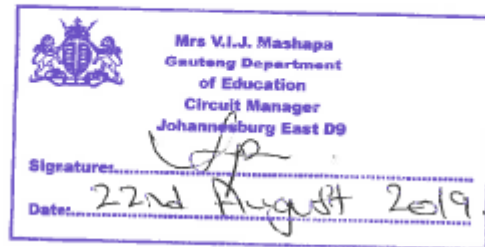 Mrs V.I.J. Mashapa
Gauteng Department
of Education
Circuit Manager
Johannesburg East D9
Signature:
Date: 22nd August 2019